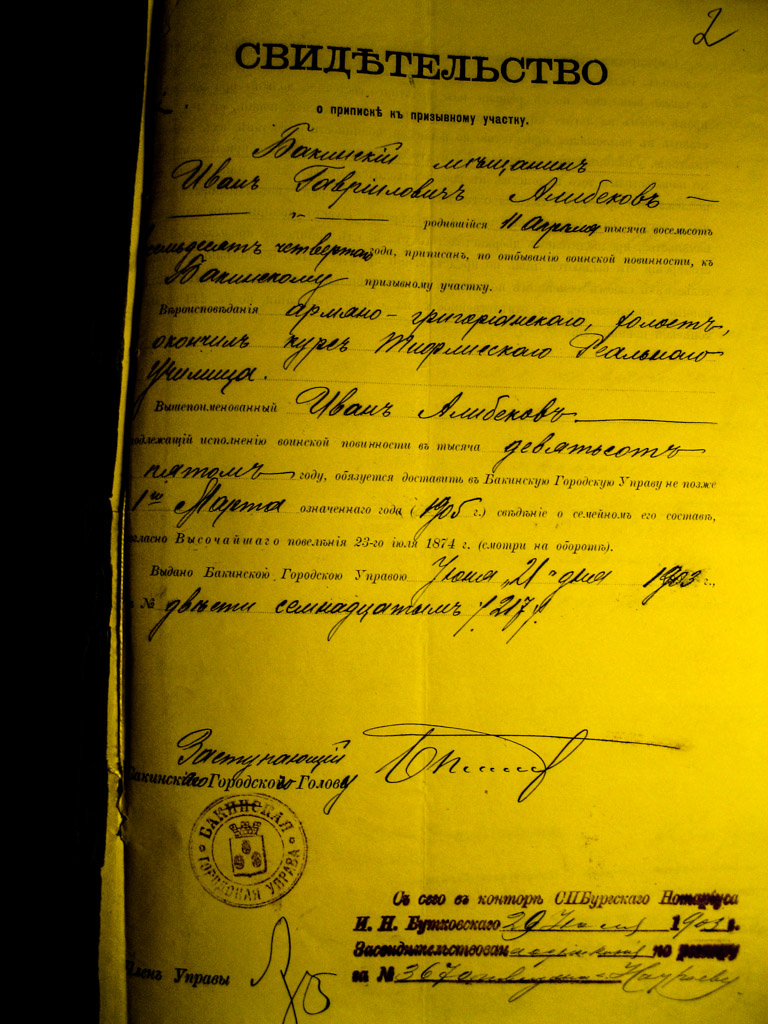 2
СВИДѢТЕЛЬСТВО
о припискѣ къ призывному участку.
Бакинскій мѣщанинъ
Иванъ Гавріиловичъ Алибековъ —
родившійся 11 Апрѣля тысяча восемьсотъ
семьдесятъ четвертаго года, приписанъ, по отбыванію воинской повинности, къ
Бакинскому призывному участку.
Вѣроисповѣданія армяно-григоріанскаго, холостъ,
окончилъ курсъ Тифлисскаго Реальнаго
Училища.
Вышепоименованный Иванъ Алибековъ
подлежащій исполненію воинской повинности въ тысяча девятьсотъ
пятомъ году, обязуется доставить въ Бакинскую Городскую Управу не позже
1го Марта означеннаго года (1905 г.) свѣдѣніе о семейномъ его составѣ,
согласно Высочайшаго повелѣнія 23-го іюля 1874 г. (смотри на оборотѣ).
Выдано Бакинскою Городскою Управою Іюня „21" дня 1903 г.,
№ двѣсти семнадцатымъ /217/.
Заступающій
Бакинскаго Городского Голову
БАКИНСКАЯ ГОРОДСКАЯ УПРАВА
Съ сего въ конторѣ СПБургскаго Нотаріуса
И. Н. Бутковскаго 29 1903 г.
Засвидѣтельствован по реестру
за № 3670
Членъ Управы